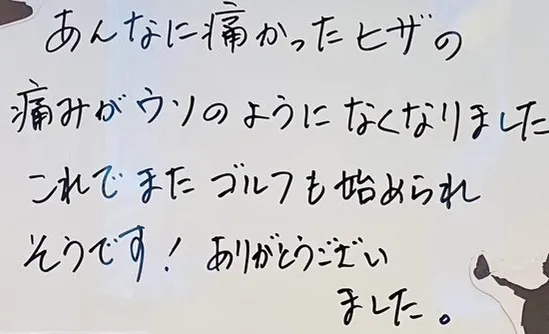 あんなに痛かったヒザの
痛みがウソのようになくなりました
これでまたゴルフも始められ
そうです！ありがとうござい
ました。